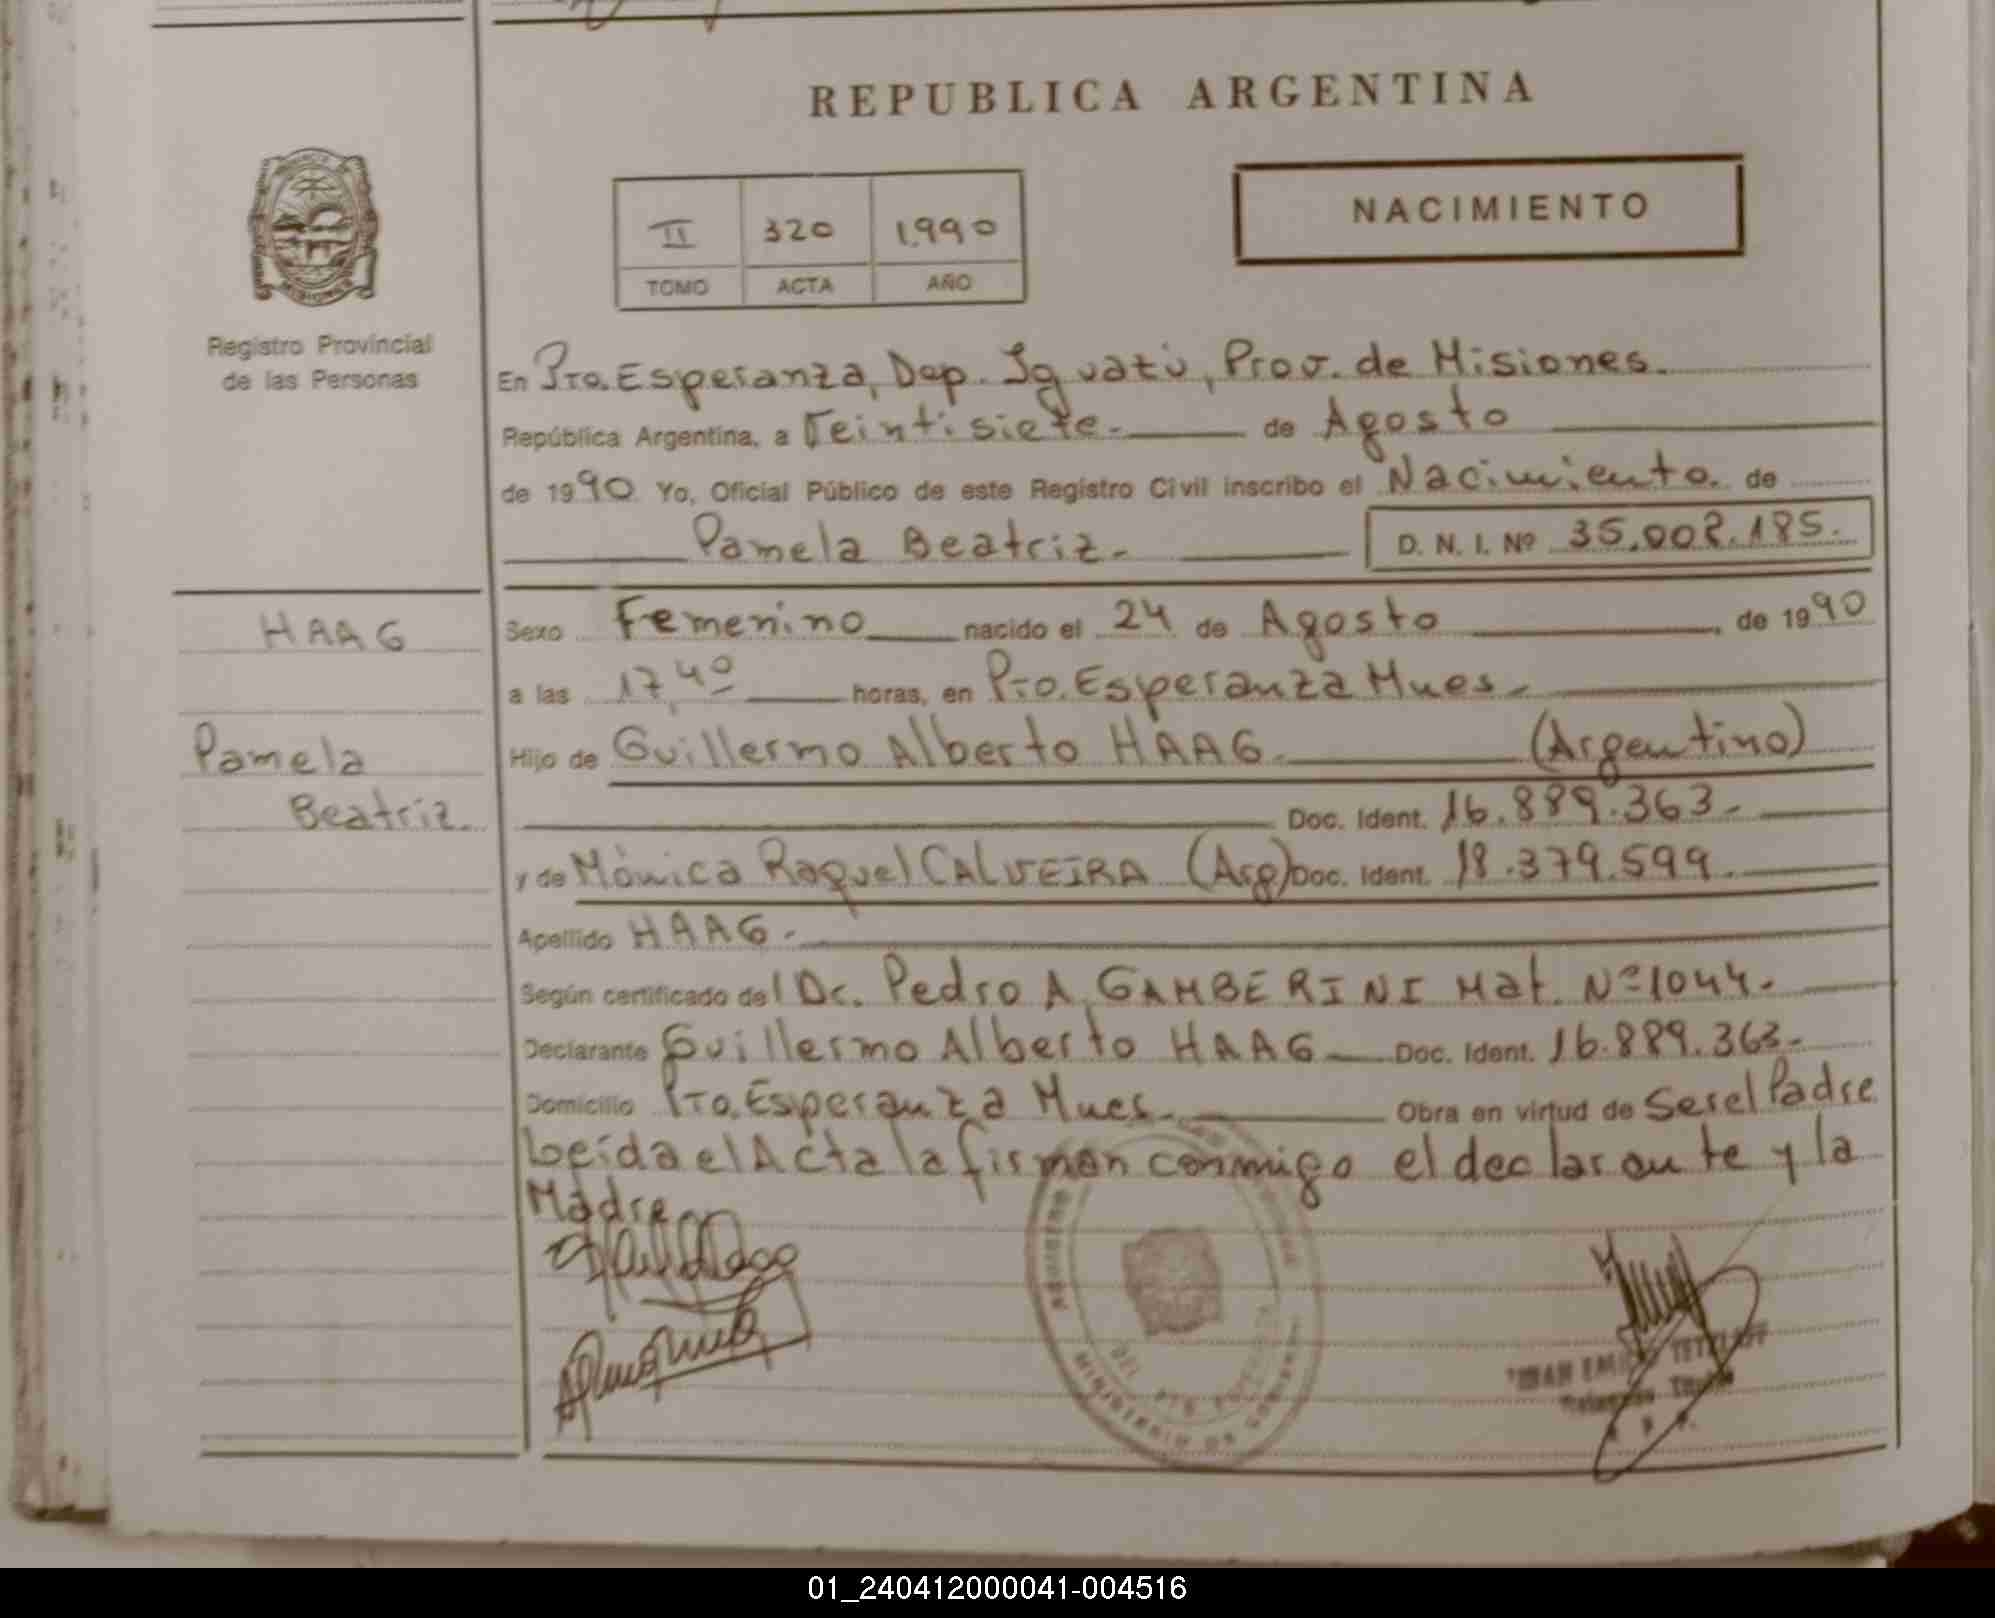 REPUBLICA ARGENTINA
NACIMIENTO
II 320 1.990
TOMO ACTA AÑO
MISIONES
Registro Provincial
de las Personas
En Pto. Esperanza, Dep. Iguazú, Prov. de Misiones.
República Argentina, a Veintisiete.- de Agosto
de 1990 Yo, Oficial Público de este Registro Civil inscribo el Nacimiento. de
Pamela Beatriz.- D. N. I. Nº 35.002.185.
HAAG
Pamela
Beatriz.
Sexo Femenino nacido el 24 de Agosto , de 1990
a las 17,40 horas, en Pto. Esperanza Mnes.-
Hijo de Guillermo Alberto HAAG. (Argentino)
Doc. Ident. 16.889.363.-
y de Mónica Raquel CALVEIRA (Arg) Doc. Ident. 18.379.599.
Apellido HAAG.-
Según certificado del Dr. Pedro A. GAMBERINI Mat. Nº 1044.-
Declarante Guillermo Alberto HAAG Doc. Ident. 16.889.363.-
Domicilio Pto. Esperanza Mnes.- Obra en virtud de Ser el Padre
Leída el Acta la firman conmigo el declarante y la
Madre
01_240412000041-004516